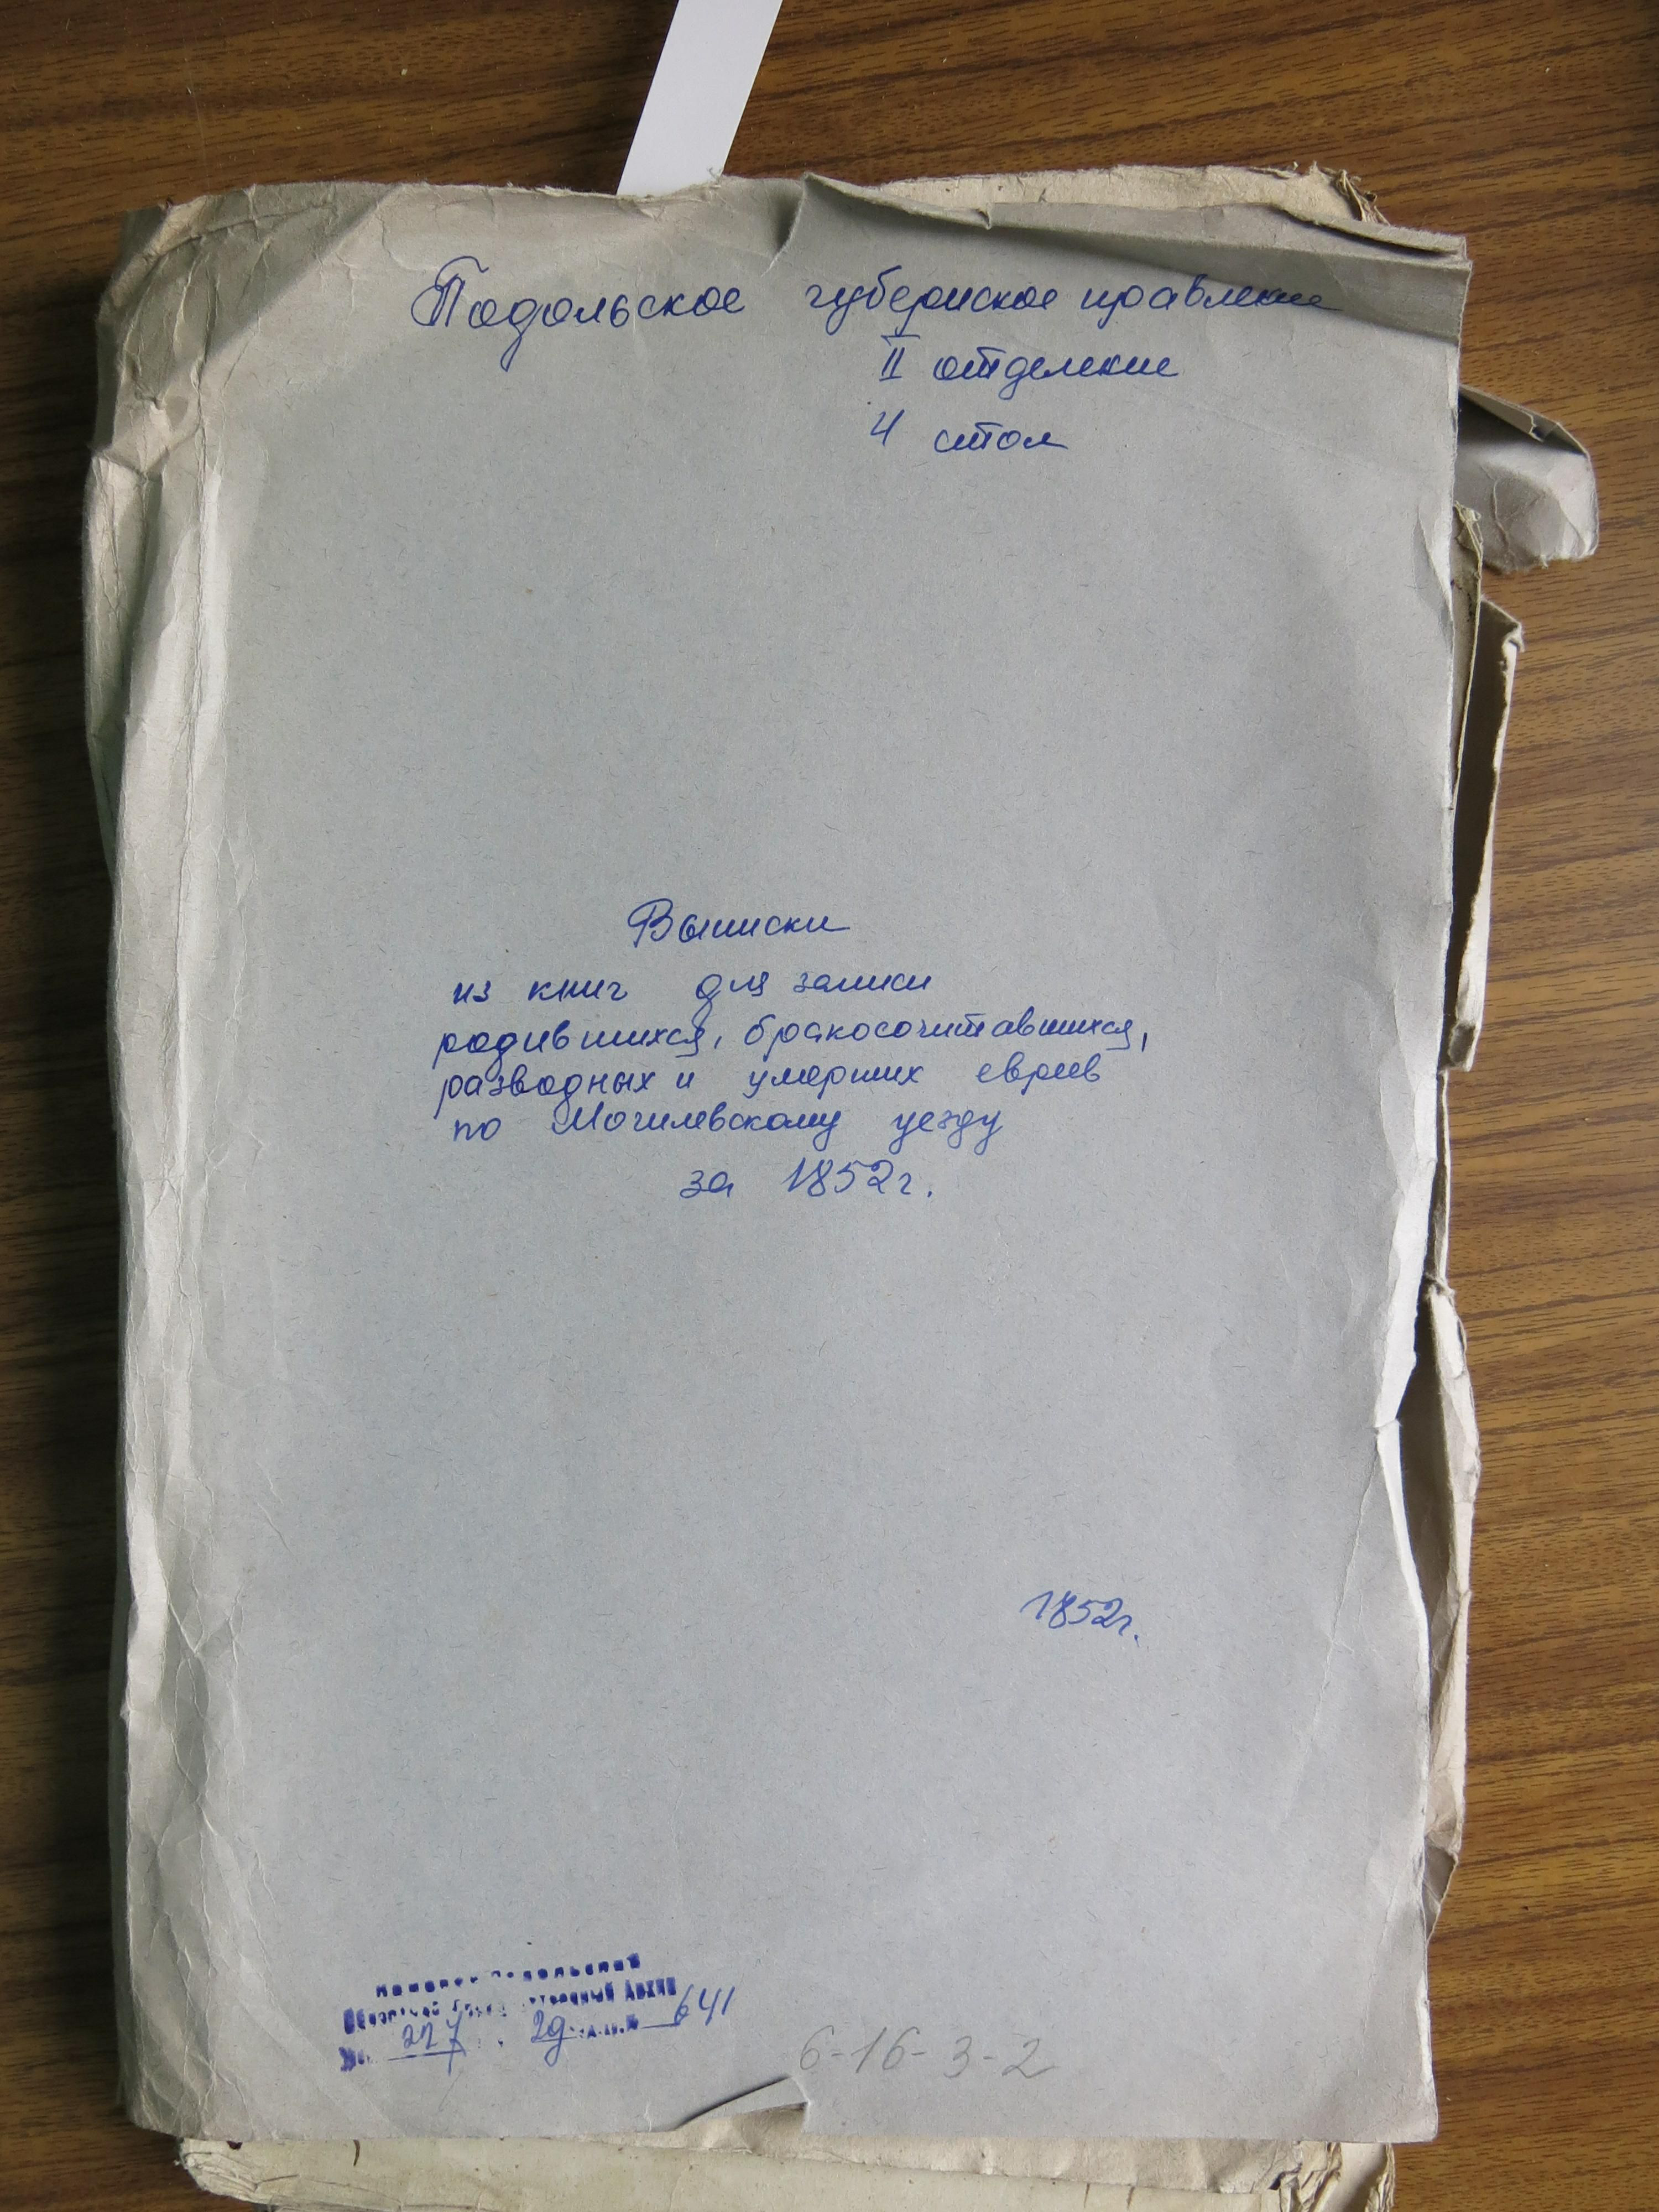 Подольское губернское правление
II отделение
4 стол
Выписки
из книг для записи
родившихся, бракосочитавшихся,
разводных и умерших евреев
по Могилевскому уезду
за 1852г.
1852г.
Архив
227 29 641
6-16-3-2